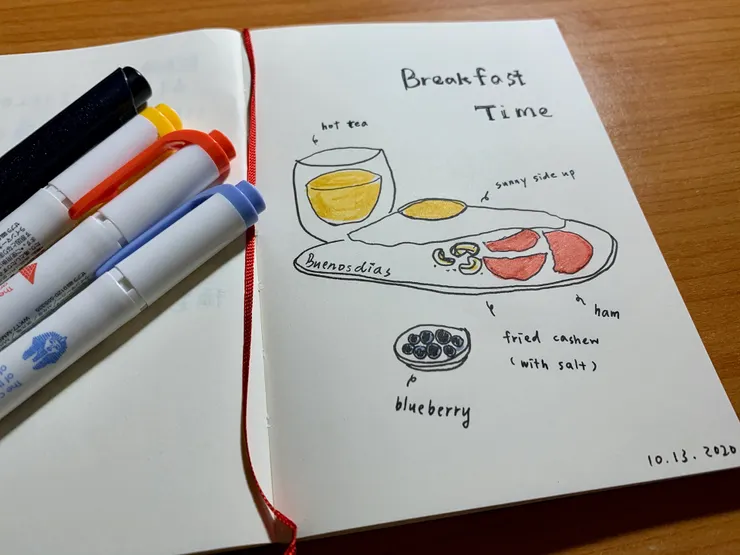 Breakfast
Time
hot tea
sunny side up
Buenosdias
ham
fried cashew
(with salt)
blueberry
10.13.2020